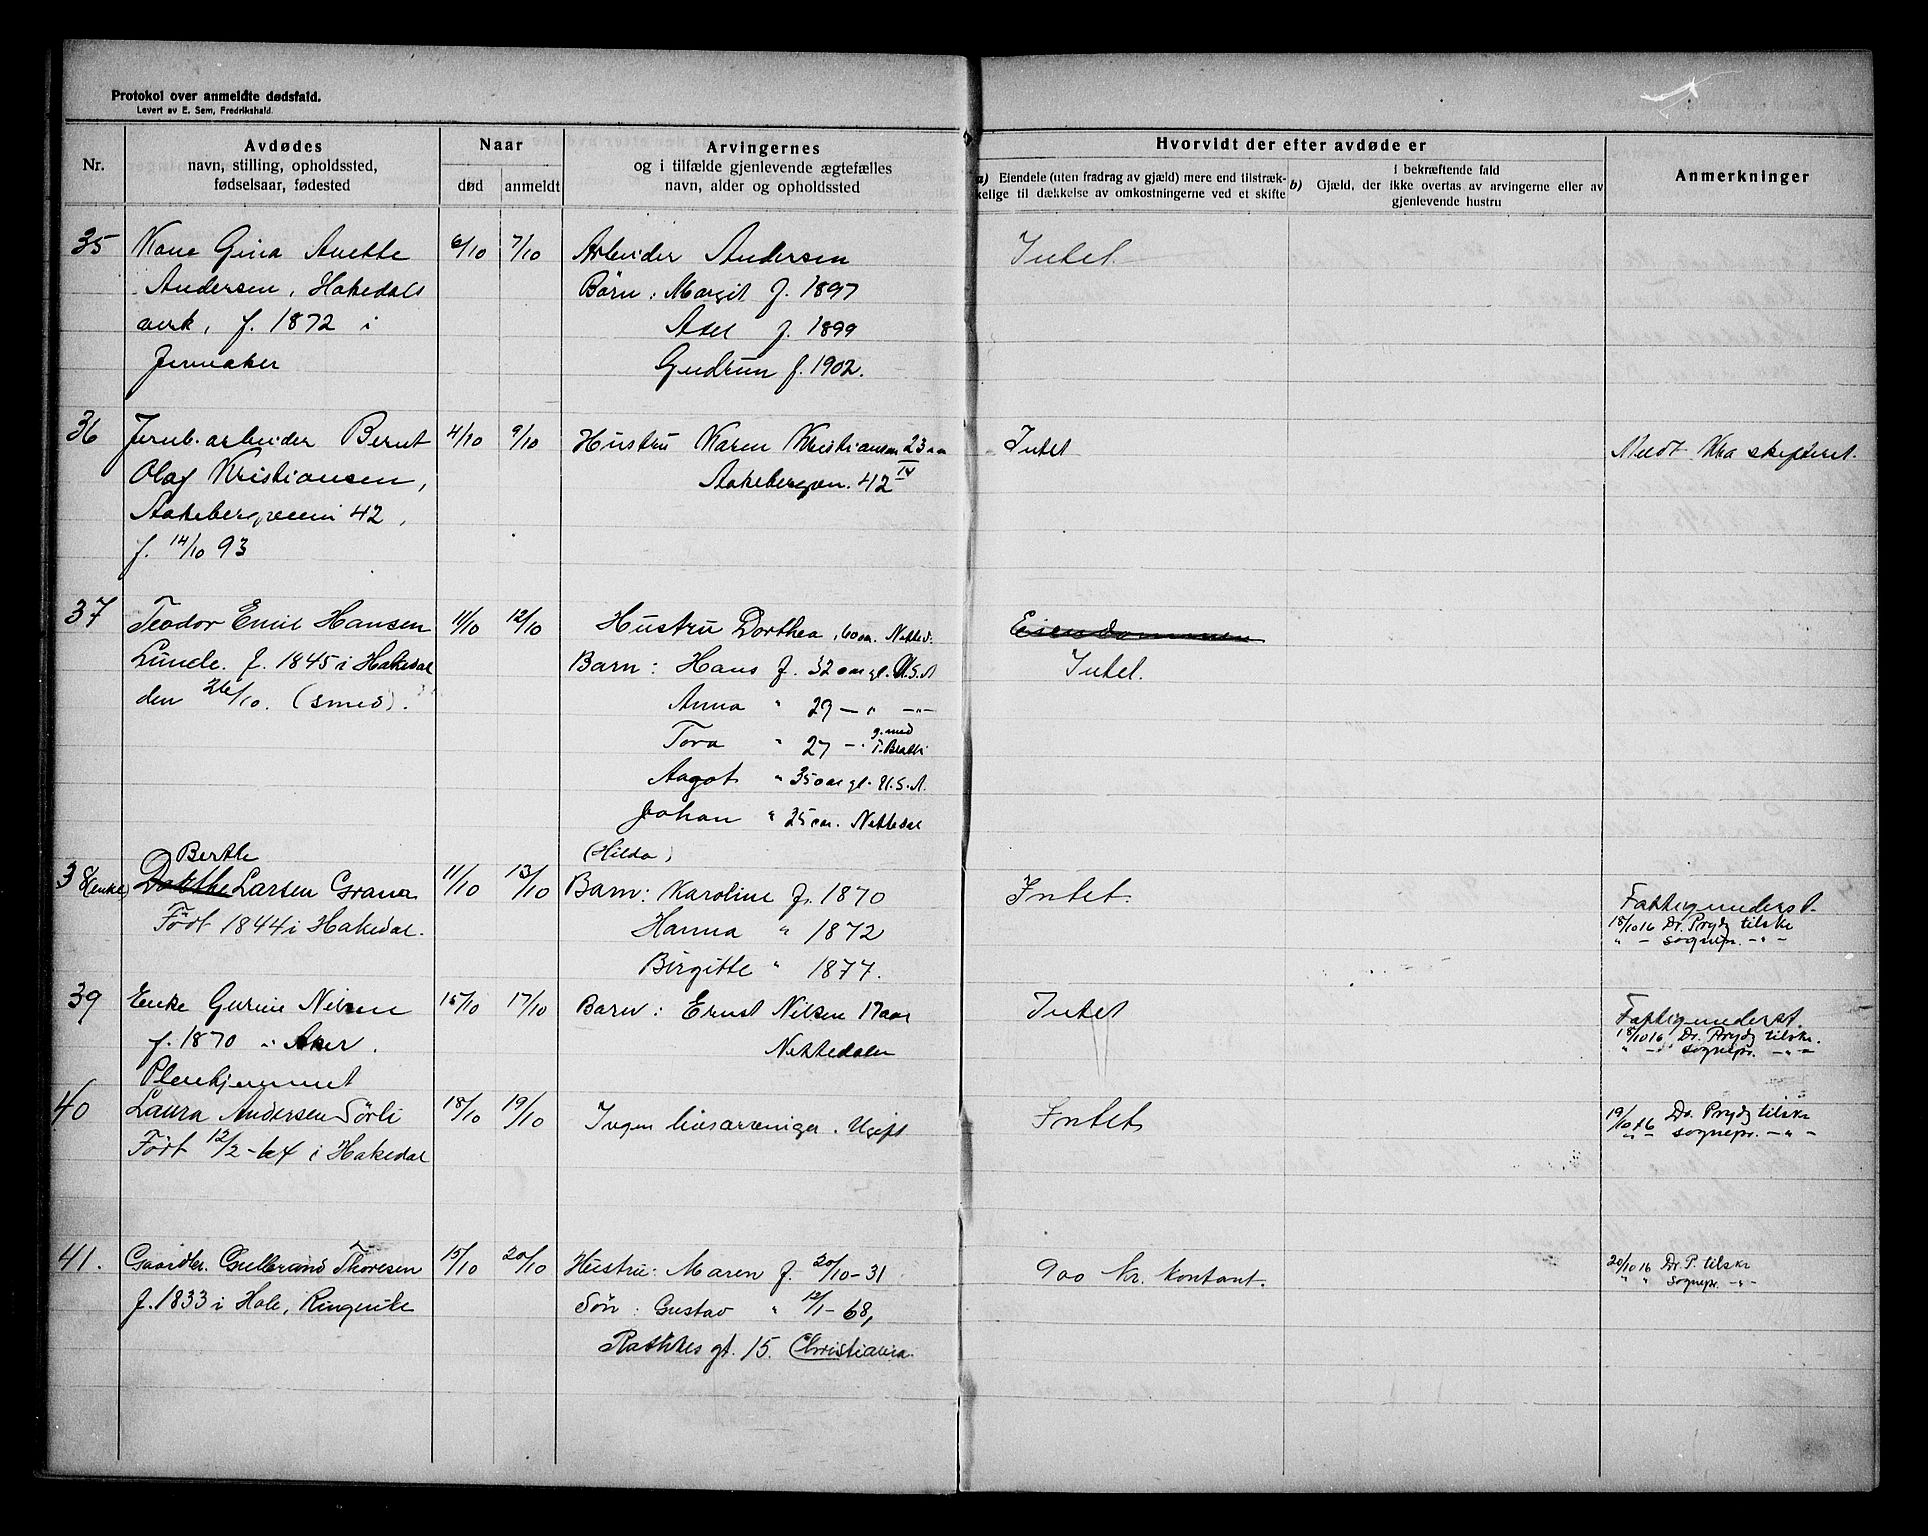 Protokol over anmeldte dødsfald.
Levert av E. Sem, Fredrikshald.
Nr.
Avdødes
navn, stilling, opholdssted,
fødselsaar, fødested
Naar
død
anmeldt
Arvingernes
og i tilfælde gjenlevende ægtefælles
navn, alder og opholdssted
Hvorvidt der efter avdøde er
a) Eiendele (uten fradrag av gjæld) mere end tilstræk-
kelige til dækkelse av omkostningerne ved et skifte
i bekræftende fald
b) Gjæld, der ikke overtas av arvingerne eller av
gjenlevende hustru
Anmerkninger
35 Kone Gina Anette 6/10 7/10 Arbeider Andersen Intet
Andersen, Hakedals Børn: Margit f. 1897
verk, f. 1872 i Axel f. 1899
Jevnaker Gudrun f. 1902.
36 Jernb. arbeider Bernt 4/10 9/10 Hustru Karen Kristiansen 23 aar Intet Medt Kra skifteret.
Olaf Kristiansen, Aakebergvn. 42 IV
Aakebergveien 42,
f. 14/10 93
37 Teodor Emil Hansen 11/10 12/10 Hustru Dorthea, 60 aar. Nitted. Eiendommen
Lunde. f. 1845 i Hakedal Barn: Hans f. 32 aar gl. U.S.A Intet.
den 26/10. (smed). Anna " 29 — " —"—
Tora " 27 — " g. med T. Bratli
Aagot " 35 aar gl. U.S.A.
Johan " 25 aar. Nittedal
38 (enke) Dorthe Berthe Larsen Grana 11/10 13/10 (Hilda) Barn: Karoline f. 1870 Intet. Fattigunderst.
Født 1844 i Hakedal. Hanna " 1872 18/10 16 Dr. Prydz tilskr
Birgitte " 1877. " — sognepr. —"—
39 Enke Gurine Nilsen 15/10 17/10 Barn: Ernst Nilsen 17 aar Intet Fattigunderst.
f. 1870 i Aker. Nittedalen 18/10 16 Dr. Prydz tilskr.
Pleiehjemmet " — " sognepr. —"—
40 Laura Andersen Sörli 18/10 19/10 Ingen livsarvinger. Ugift Intet 19/10 16 Dr. Prydz tilskr
Født 12/2 - 64 i Hakedal " — sognepr. —"—
41. Gaardbr. Gulbrand Thoresen 15/10 20/10 Hustru: Maren f. 20/10-31 900 kr. kontant. 20/10 16 Dr. P. tilskr
f. 1833 i Hole, Ringerike Sön: Gustav " 12/1-68, " " Sognepr. —"—
Rathkes gt. 15. Christiania.